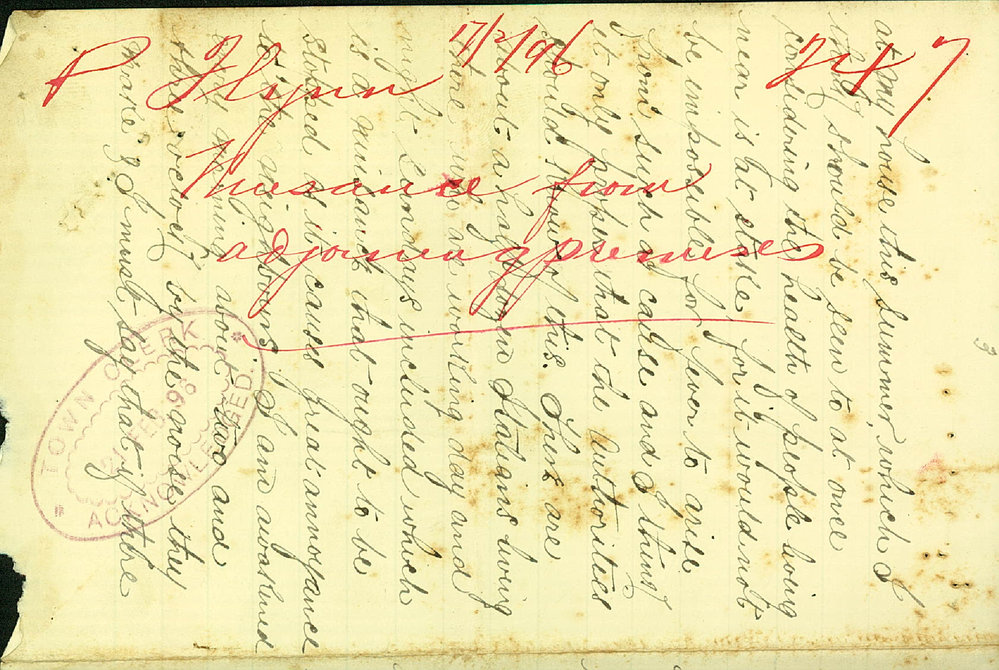 P Flynn 17/2/96 747
Nuisance from
adjoining premises
at my house this summer, which I
think should be seen to at once
considering the health of people living
near is at stake for it would not
be impossible for fever to arise
from such a cause and I think
it only proper that the authorities
should know of this. There are
about a half dozen Italians living
there who are working day and
night Sundays included which
is a nuisance that ought to be
stoped as it causes great annoyance
to the neighbours. I am awakened
every morning about two and
three o'clock by the noise they
make. I must say that if there
TOWN CLERK
FEB 96
ACKNOWLEDGED
3